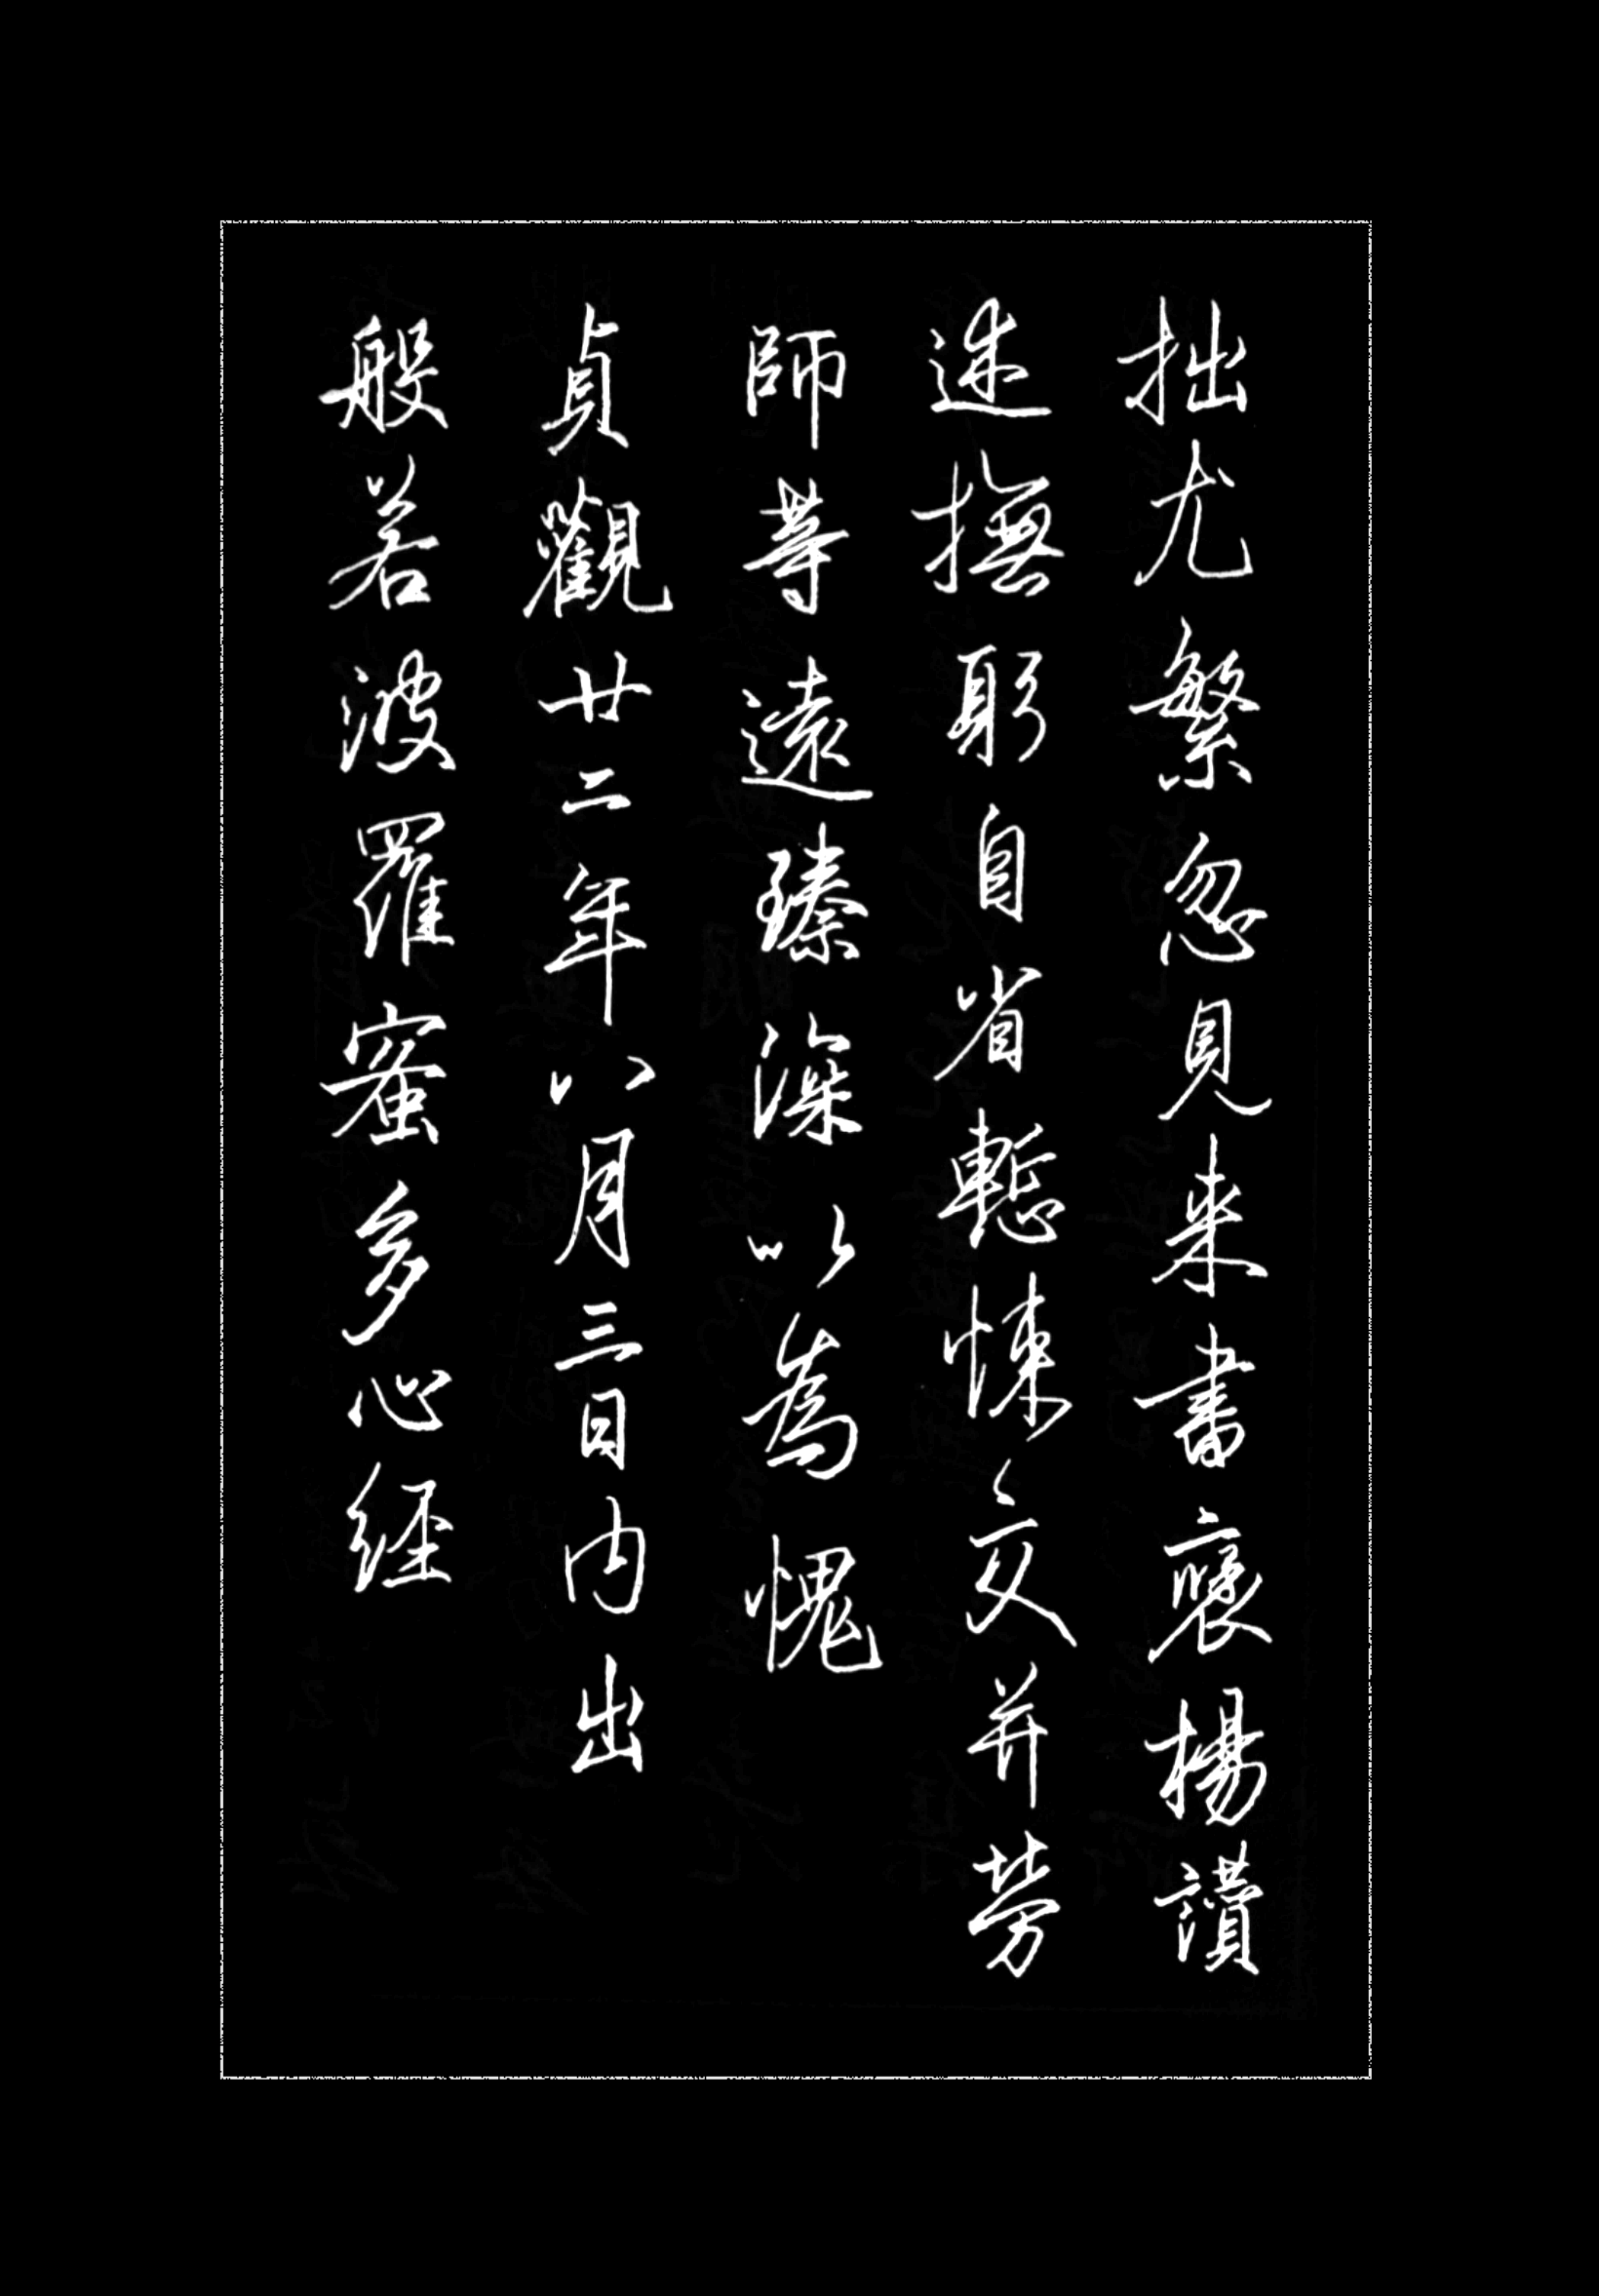 拙尤繁忽見来書褒揚讃
述撫躬自省慙悚交并勞
師等遠臻深以為愧
貞觀廿二年八月三日內出
般若波羅蜜多心経